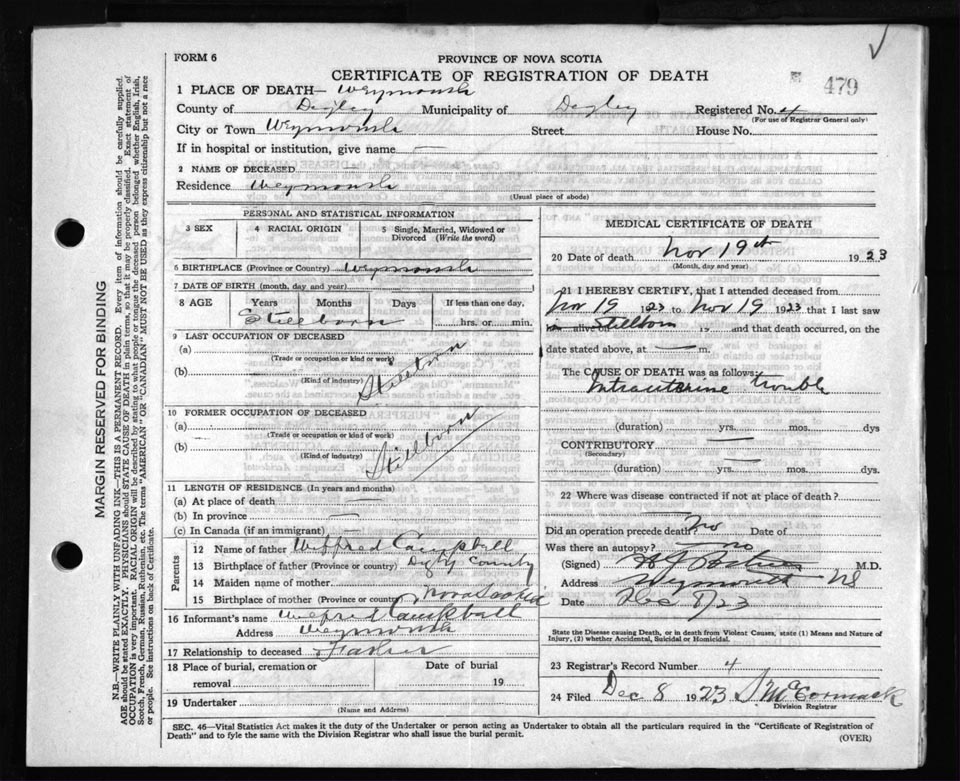 FORM 6
PROVINCE OF NOVA SCOTIA
CERTIFICATE OF REGISTRATION OF DEATH
479
1 PLACE OF DEATH— Weymouth
County of Digby Municipality of Digby Registered No. 4
(For use of Registrar General only)
City or Town Weymouth Street House No.
If in hospital or institution, give name —
2 NAME OF DECEASED
Residence Weymouth
(Usual place of abode)
PERSONAL AND STATISTICAL INFORMATION
3 SEX 4 RACIAL ORIGIN 5 Single, Married, Widowed or Divorced (Write the word)
6 BIRTHPLACE (Province or Country) Weymouth
7 DATE OF BIRTH (month, day and year)
8 AGE Years Months Days If less than one day,
Stillborn hrs. or min.
9 LAST OCCUPATION OF DECEASED
(a)
(Trade or occupation or kind of work)
(b)
(Kind of industry)
Stillborn
10 FORMER OCCUPATION OF DECEASED
(a)
(Trade or occupation or kind of work)
(b)
(Kind of industry)
Stillborn
11 LENGTH OF RESIDENCE (In years and months)
(a) At place of death —
(b) In province —
(c) In Canada (if an immigrant) —
Parents
12 Name of father Wilfred Campbell
13 Birthplace of father (Province or country) Digby County
14 Maiden name of mother
15 Birthplace of mother (Province or country) Nova Scotia
16 Informant's name Wilfred Campbell
Address Weymouth
17 Relationship to deceased Father
18 Place of burial, cremation or removal Date of burial 19
19 Undertaker
(Name and Address)
MEDICAL CERTIFICATE OF DEATH
20 Date of death Nov 19th 1923
(Month, day and year)
21 I HEREBY CERTIFY, that I attended deceased from
Nov 19 1923 to Nov 19 1923 that I last saw
alive Stillborn 19 and that death occurred, on the
date stated above, at — m.
The CAUSE OF DEATH was as follows:
Intrauterine trouble
(duration) yrs. mos. dys
CONTRIBUTORY —
(Secondary)
(duration) yrs. mos. dys.
22 Where was disease contracted if not at place of death?
Did an operation precede death? No Date of
Was there an autopsy? no
(Signed) M.D.
Address Weymouth NS
Date Dec 8/23
State the Disease causing Death, or in death from Violent Causes, state (1) Means and Nature of Injury, (3) whether Accidental, Suicidal or Homicidal.
23 Registrar's Record Number 4
24 Filed Dec 8 1923 J McCormack
Division Registrar
SEC. 46—Vital Statistics Act makes it the duty of the Undertaker or person acting as Undertaker to obtain all the particulars required in the "Certificate of Registration of
Death" and to fyle the same with the Division Registrar who shall issue the burial permit.
(OVER)
MARGIN RESERVED FOR BINDING
N.B.—WRITE PLAINLY WITH UNFADING INK.—THIS IS A PERMANENT RECORD. Every item of information should be carefully supplied.
AGE should be stated EXACTLY. PHYSICIANS should STATE CAUSE OF DEATH in plain terms, so that it may be properly classified. Exact statement of
OCCUPATION is very important. RACIAL ORIGIN will be described by stating to what people or tongue the deceased person belonged whether English, Irish,
Scotch, French, German, Russian, Ruthenian, etc. The terms "AMERICAN" or "CANADIAN" MUST NOT BE USED as they express citizenship but not a race
or people. See instructions on back of Certificate.